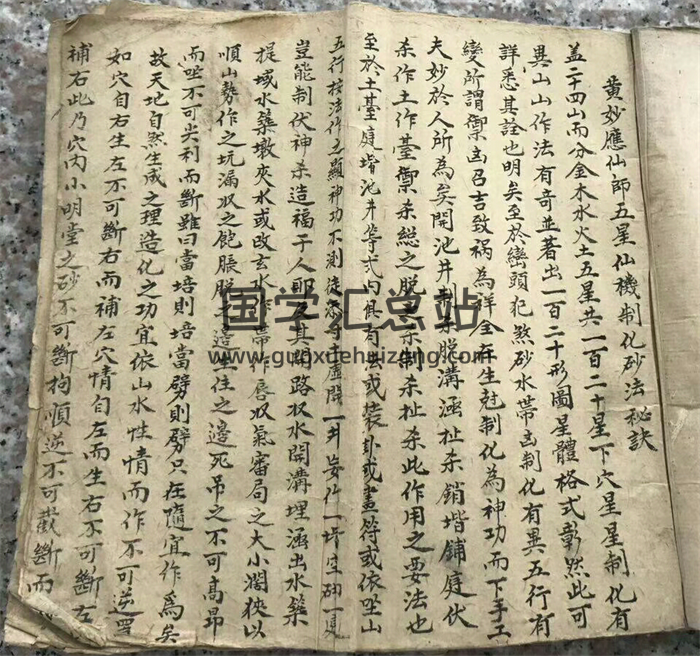 黄妙應仙師五星仙機制化砂法秘訣
盖二十四山而分金木水火土五星共一百二十星下穴星星制化有
異山山作法有奇並著出一百二十形圖星體格式彰然此可
詳悉其詮也明矣至於巒頭犯煞砂水帶凶制化有異五行有
變所謂禦凶召吉致祸為祥全在生尅制化為神功而下手工
夫妙於人所為矣開池井制杀脫溝涵扯杀銷堦鋪庭伏
杀作土作臺禦杀総之脫杀制杀扯杀此作用之要法也
至於土臺庭堦池井等式内具有法或裝卦或畫符或依坐山
五行按法作之顯神功不測徒 一井 一
豈能制伏神杀造福于人耶及其開路収水開溝埋涵出水築
提域水築墩夾水或改玄水作帶作唇収氣審局之大小濶狹以
順山勢作之坑漏収之飽脹脫之 之邊死吊之不可高昻
而 不可尖利而斷雖曰當培則培當劈則劈只在隨宜作為矣
故天地自然生成之理造化之功宜依山水性情而作不可逆
如穴自右生左不可斷右而補左穴情自左而生右不可斷左
補右此乃穴内小明堂之砂不可斷拘順逆不可截斷而
国学汇总站
www.guoxuehuizong.com